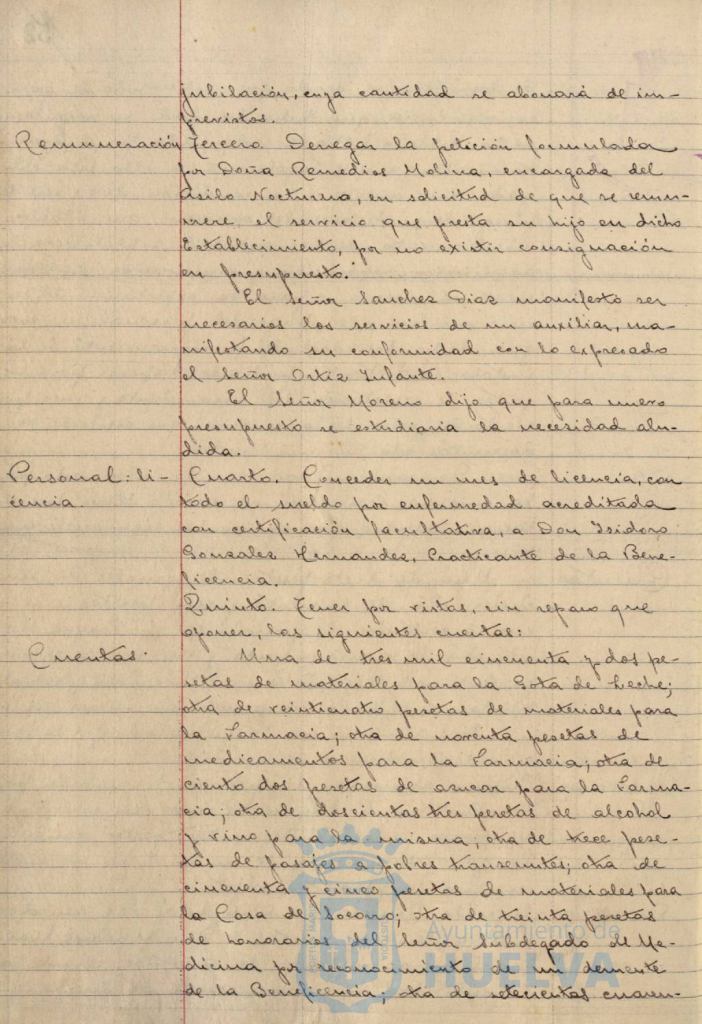 jubilación, cuya cantidad se abonará de im-
previstos.
Remuneración Tercero. Denegar la petición formulada
por Doña Remedios Molina, encargada del
Asilo Nocturno, en solicitud de que se remu-
nere el servicio que presta su hijo en dicho
Establecimiento, por no existir consignación
en presupuesto.
El Señor Sanchez Diaz manifestó ser
necesarios los servicios de un auxiliar, ma-
nifestando su conformidad con lo expresado
el Señor Ortiz Infante.
El Señor Moreno dijo que para nuevo
presupuesto se estudiaria la necesidad alu-
dida.
Personal: li- Cuarto. Conceder un mes de licencia, con
cencia. todo el sueldo por enfermedad acreditada
con certificación facultativa, a Don Isidoro
Gonzalez Hernandez, Practicante de la Bene-
ficencia.
Quinto. Tener por vistas, sin reparo que
oponer, las siguientes cuentas:
Cuentas. Una de tres mil cincuenta y dos pe-
setas de materiales para la Gota de Leche;
otra de veinticuatro pesetas de materiales para
la Farmacia; otra de noventa pesetas de
medicamentos para la Farmacia; otra de
ciento dos pesetas de azucar para la Farma-
cia; otra de doscientas tres pesetas de alcohol
y vino para la misma; otra de trece pese-
tas de pasajes a pobres transeuntes; otra de
cincuenta y cinco pesetas de materiales para
la Casa de Socorro; otra de treinta pesetas
de honorarios del Señor Subdegado de Me-
dicina por reconocimiento de un demente
de la Beneficencia; otra de setecientas cuaren-
Ayuntamiento de
HUELVA